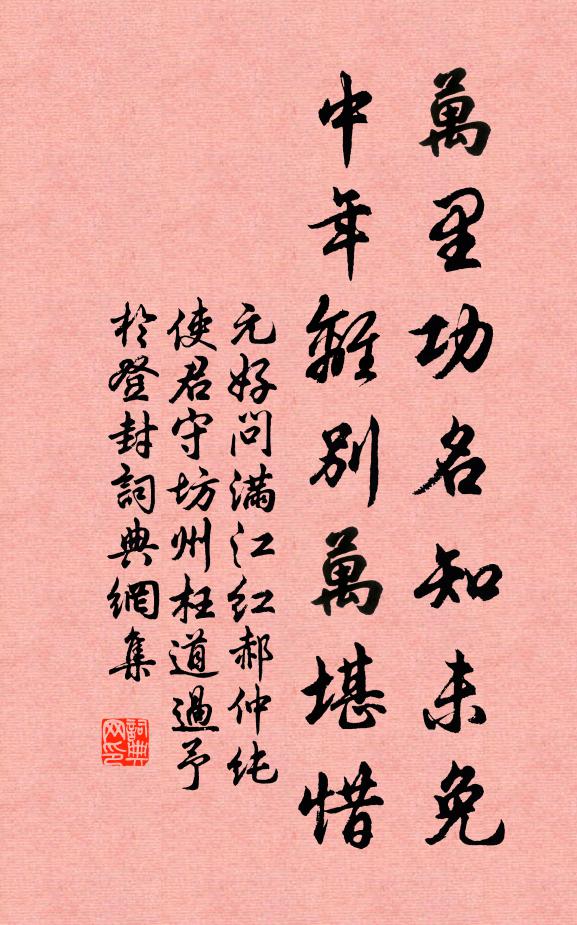 萬里功名知未免
中年離別萬堪惜
元好問滿江红郝仲纯
使君守坊州枉道過予
於登封詞典網集
詞典網印